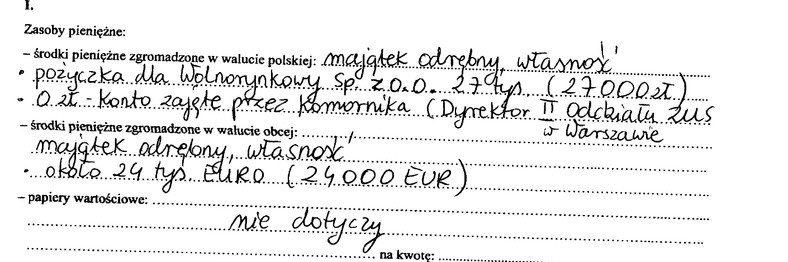 I.
Zasoby pieniężne:
– środki pieniężne zgromadzone w walucie polskiej: majątek odrębny, własność
• pożyczka dla Wolnorynkowy Sp. z o.o. 27 tys. (27000zł)
• 0 zł - Konto zajęte przez Komornika (Dyrektor II Oddziału ZUS
w Warszawie
– środki pieniężne zgromadzone w walucie obcej:
majątek odrębny, własność
• około 24 tys. EURO (24000 EUR)
– papiery wartościowe:
nie dotyczy
na kwotę: